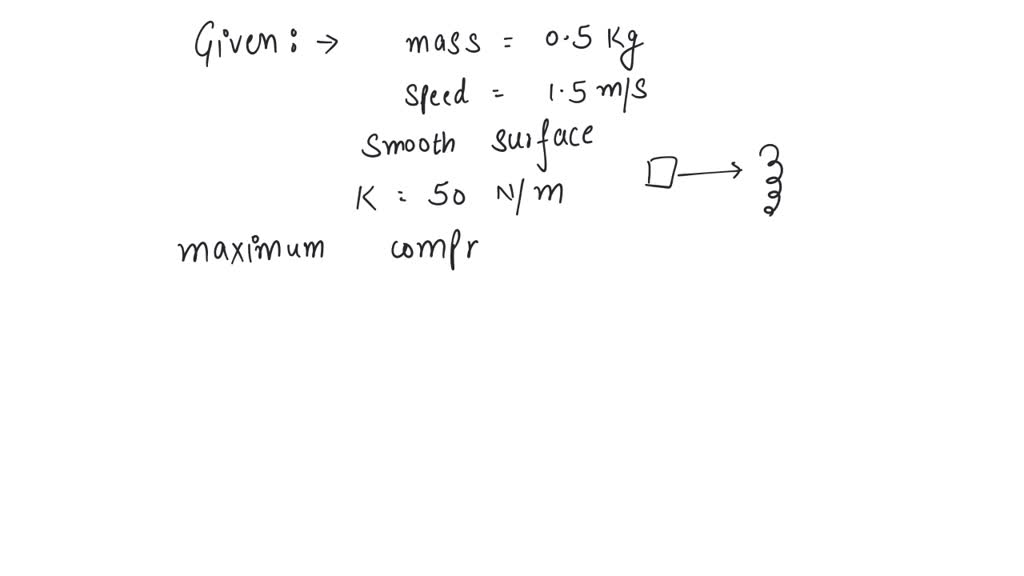 Given: → mass = 0.5 Kg
Speed = 1.5 m/s
Smooth surface
K = 50 N/m
maximum compr